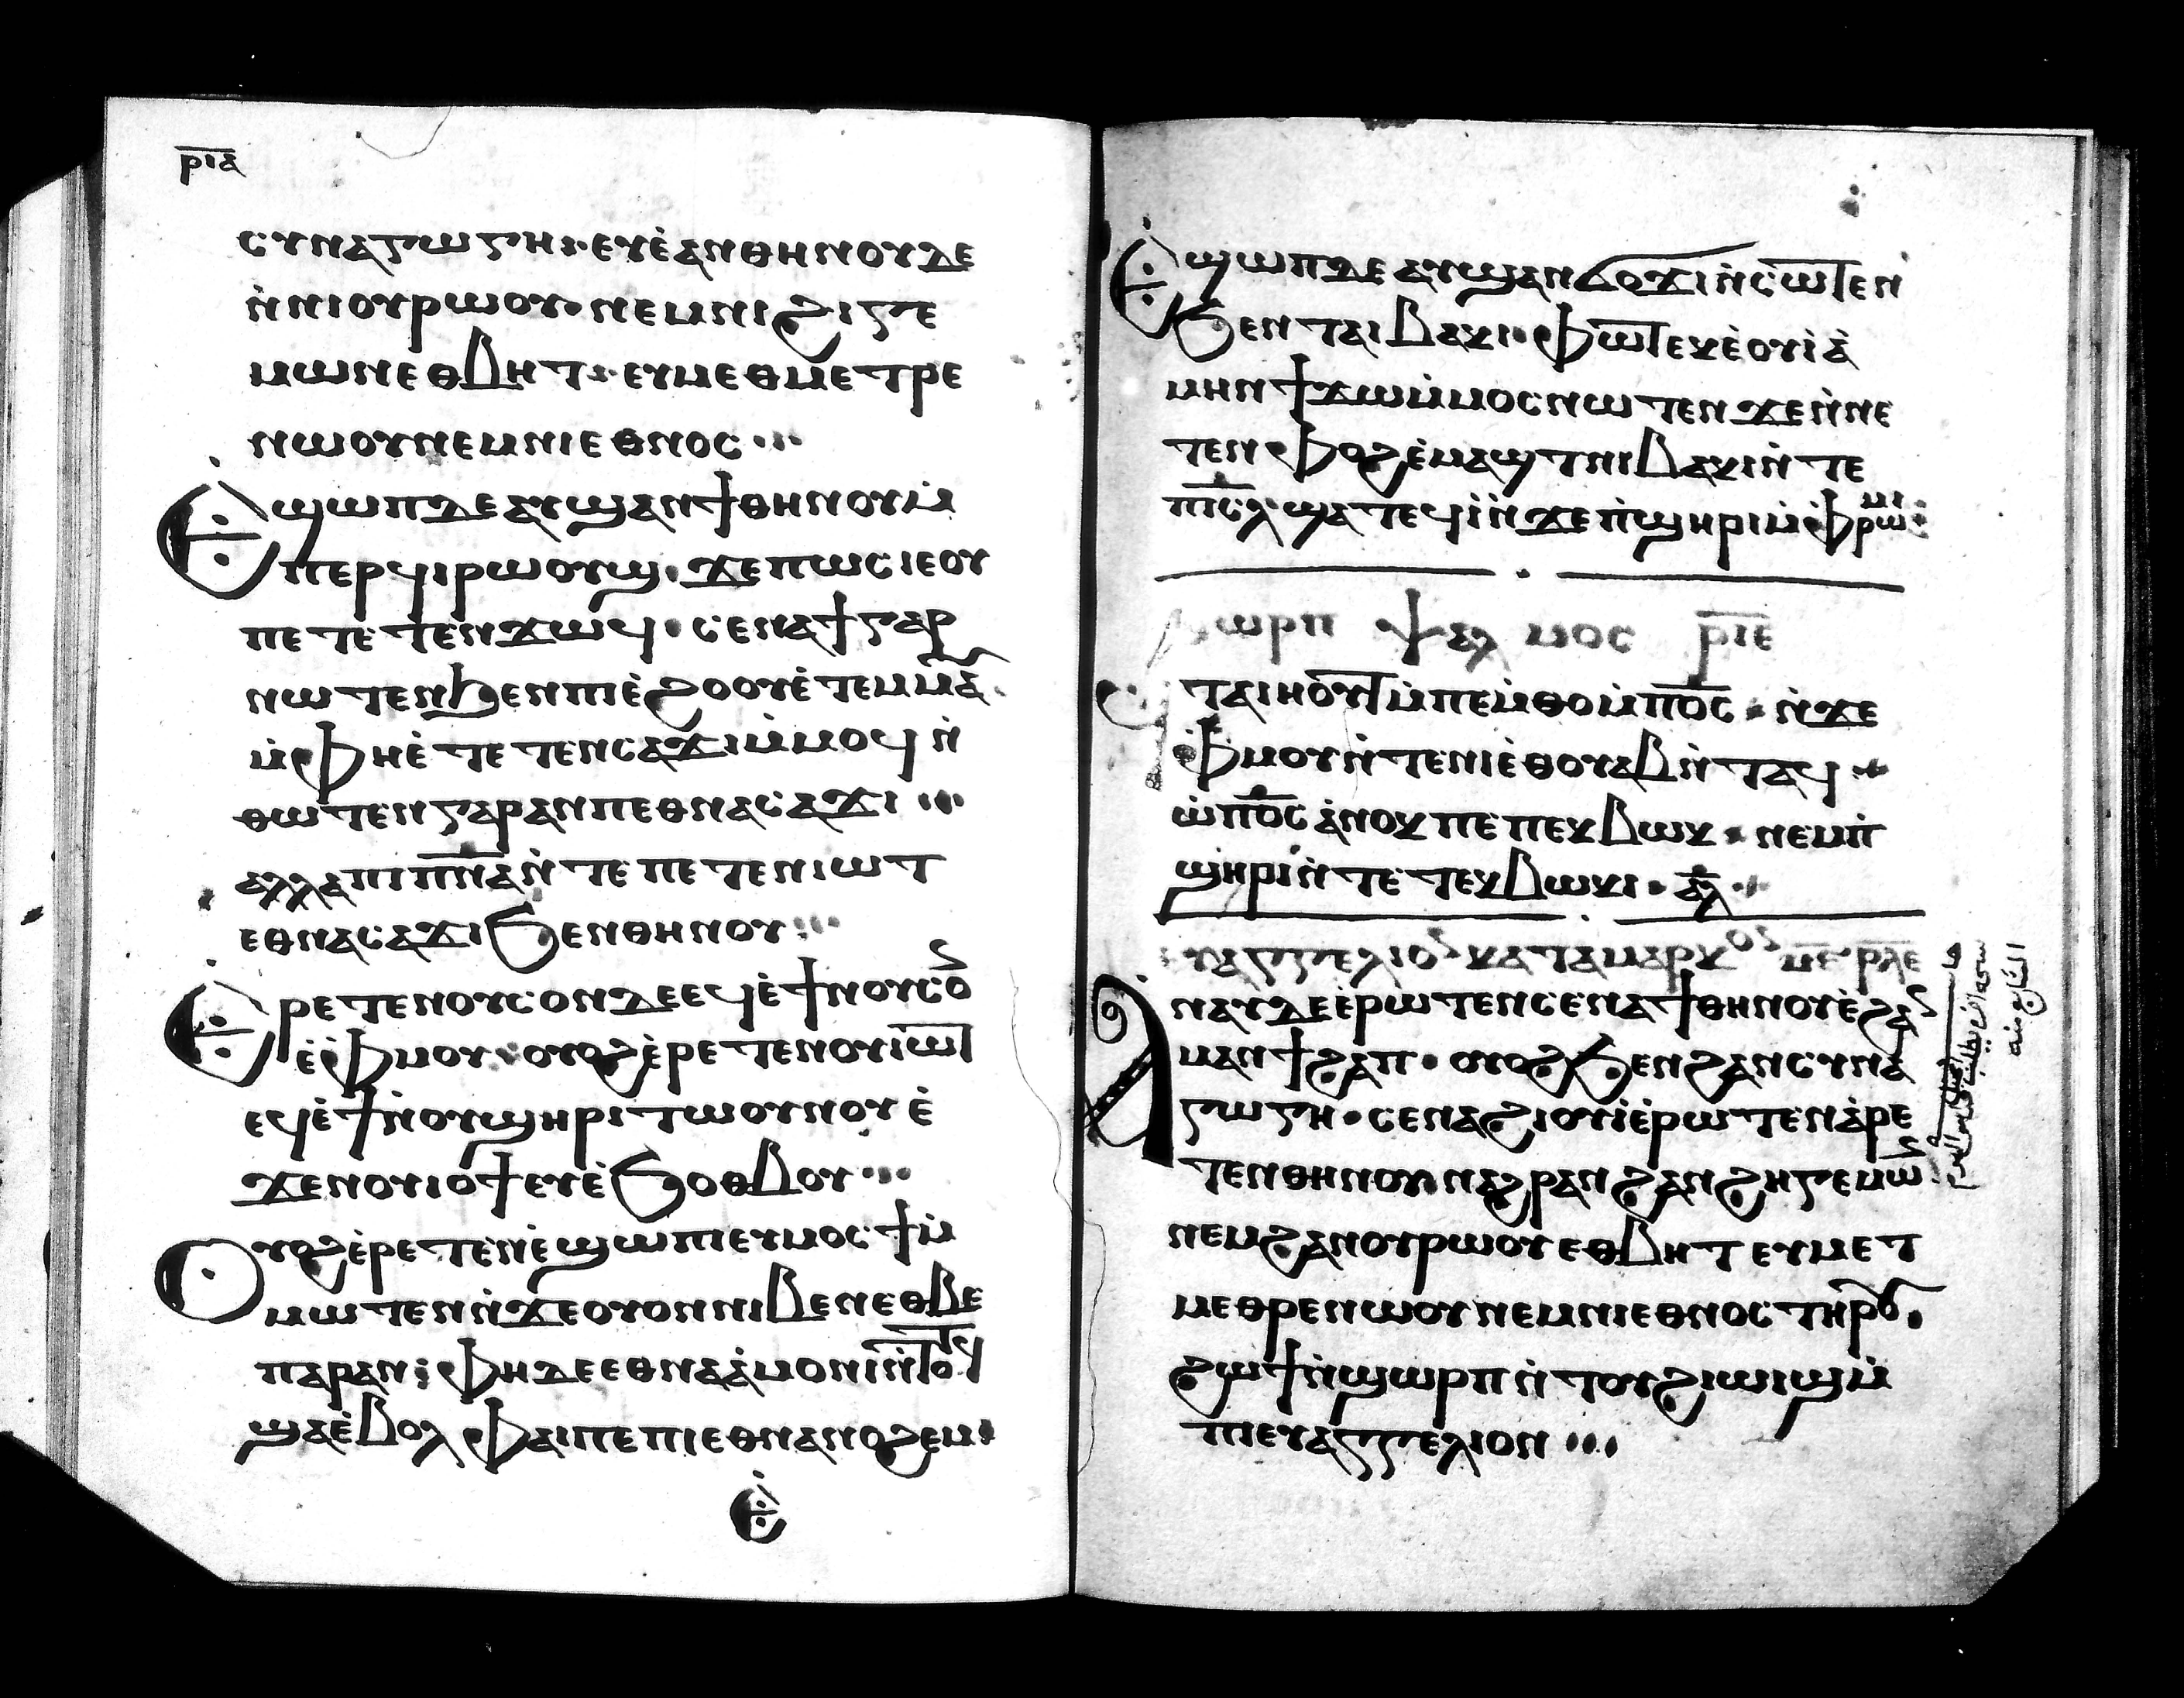 ⲣⲓⲁ
ⲥⲩⲛⲁⲅⲱⲅⲏ ⲉⲩⲉ̀ⲁⲛ ⲑⲏⲛⲟⲩ ⲇⲉ
ⲛ̀ⲛⲓⲟⲩⲣⲱⲟⲩ· ⲛⲉⲙ ⲛⲓϩⲓⲅⲉ
ⲙⲱⲛ ⲉⲑⲃⲏⲧ· ⲉⲩⲙⲉⲑⲙⲉⲧⲣⲉ
ⲛⲱⲟⲩ ⲛⲉⲙ ⲛⲓⲉⲑⲛⲟⲥ
Ⲉ̀ϣⲱⲡ ⲇⲉ ⲁⲩϣⲁⲛϯ ⲑⲏⲛⲟⲩ ⲙ̀
ⲡⲉⲣϥⲓⲣⲱⲟⲩϣ· ϫⲉ ⲡⲱⲥ ⲓⲉ ⲟⲩ
ⲡⲉⲧⲉⲧⲉⲛϫⲱϥ· ⲥⲉⲛⲁϯ ⲅⲁⲣ
ⲛⲱⲧⲉⲛ ϧⲉⲛ ⲡⲓⲉ̀ϩⲟⲟⲩ ⲉ̀ⲧⲉⲙⲙⲁ
ⲙ̀ⲫⲏ ⲉ̀ⲧⲉⲧⲉⲛⲥⲁϫⲓ ⲙ̀ⲙⲟϥ ⲛ̀
ⲑⲱⲧⲉⲛ ⲅⲁⲣ ⲁⲛ ⲡⲉⲑⲛⲁⲥⲁϫⲓ
ⲁⲗⲗⲁ ⲡⲓⲡ̅ⲛ̅ⲁ̅ ⲛ̀ⲧⲉ ⲡⲉⲧⲉⲛⲓⲱⲧ
ⲉⲑⲛⲁⲥⲁϫⲓ ϧⲉⲛ ⲑⲏⲛⲟⲩ
Ⲉ̀ⲣⲉⲧⲉⲛ ⲟⲩⲥⲟⲛ ⲇⲉ ⲉϥⲉ̀ϯ ⲛⲟⲩⲥⲟ
ⲉ̀ⲫⲙⲟⲩ· ⲟⲩⲟϩ ⲉ̀ⲣⲉⲧⲉⲛ ⲟⲩⲓⲱⲧ
ⲉϥⲉ̀ϯ ⲛ̀ⲟⲩϣⲏⲣⲓ ⲧⲱⲟⲩⲛⲟⲩ ⲉ̀
ϫⲉⲛ ⲟⲩⲓⲟϯ ⲉⲩⲉ̀ϧⲟⲑⲃⲟⲩ
Ⲟⲩⲟϩ ⲉ̀ⲣⲉⲧⲉⲛⲉ̀ϣⲱⲡⲓ ⲉⲩⲙⲟⲥϯ ⲙ̀
ⲙⲱⲧⲉⲛ ⲛ̀ϫⲉ ⲟⲩⲟⲛ ⲛⲓⲃⲉⲛ ⲉⲑⲃⲉ
ⲡⲁⲣⲁⲛ: ⲫⲏ ⲇⲉ ⲉⲑⲛⲁⲁ̀ⲙⲟⲛⲓ ⲛ̀ⲧⲟⲧϥ
ϣⲁ ⲉ̀ⲃⲟⲗ ⲫⲁⲓ ⲡⲉ ⲡⲓⲉⲑⲛⲁⲛⲟϩⲉⲙ
Ⲉ̀
Ⲉ̀ϣⲱⲡ ⲇⲉ ⲁⲩϣⲁⲛϭⲟϫⲓ ⲛ̀ⲥⲱⲧⲉⲛ
ϧⲉⲛ ⲧⲁⲓⲃⲁⲕⲓ· ⲫⲱⲧ ⲉⲕⲉ̀ⲟⲩⲓ̀ ⲁ̀
ⲙⲏⲛ ϯϫⲱ ⲙ̀ⲙⲟⲥ ⲛⲱⲧⲉⲛ ϫⲉ ⲛ̀ⲛⲉ
ⲧⲉⲛⲫⲟϩ ⲉ̀ⲙⲁϣⲧ ⲛⲓⲃⲁⲕⲓ ⲛ̀ⲧⲉ
ⲡⲓⲥ̅ⲗ̅ ϣⲁⲧⲉϥⲓ̀ ⲛ̀ϫⲉ ⲡ̀ϣⲏⲣⲓ ⲙ̀ⲫⲣⲱⲙⲓ
ϣⲱⲣⲡ ⲯⲁⲗⲙⲟⲥ ⲣⲓⲉ
ϥⲧⲁⲓⲏⲟⲩⲧ ⲙ̀ⲡⲉⲙ̀ⲑⲟ ⲙ̀ⲡⲟ̅ⲥ̅· ⲛ̀ϫⲉ
ⲫⲙⲟⲩ ⲛ̀ⲧⲉ ⲛⲓⲉ̀ⲑⲟⲩⲁⲃ ⲛ̀ⲧⲁϥ
ⲱ̀ ⲡⲟ̅ⲥ̅ ⲁ̀ⲛⲟⲕ ⲡⲉ ⲡⲉⲕⲃⲱⲕ· ⲛⲉⲙ ⲡ̀
ϣⲏⲣⲓ ⲛ̀ⲧⲉ ⲧⲉⲕⲃⲱⲕⲓ· ⲁⲗ
ⲉⲩⲁⲅⲅⲉⲗⲓⲟⲛ ⲕⲁⲧⲁ ⲙⲁⲣⲕⲟⲛ ⲕⲉ ⲣⲗⲉ
Ⲁⲛⲁⲩ ⲇⲉ ⲉ̀ⲣⲱⲧⲉⲛ ⲥⲉⲛⲁϯ ⲑⲏⲛⲟⲩ ⲉ̀ϩⲁⲛ
ⲙⲁⲛϯϩⲁⲡ· ⲟⲩⲟϩ ϧⲉⲛ ϩⲁⲛⲥⲩⲛⲁ
ⲅⲱⲅⲏ· ⲥⲉⲛⲁϩⲓⲟⲩⲓ̀ ⲉ̀ⲣⲱⲧⲉⲛ ⲁ̀ⲣⲉ
ⲧⲉⲛⲑⲏⲛⲟⲩ ⲛⲁϩⲣⲁⲛ ϩⲁⲛϩⲏⲅⲉⲙⲱⲛ
ⲛⲉⲙ ϩⲁⲛⲟⲩⲣⲱⲟⲩ ⲉⲑⲃⲏⲧ ⲉⲩⲙⲉⲧ
ⲙⲉⲑⲣⲉ ⲛⲱⲟⲩ ⲛⲉⲙ ⲛⲓⲉⲑⲛⲟⲥ ⲧⲏⲣⲟⲩ.
ϩⲱϯ ⲛ̀ϣⲱⲣⲡ ⲛ̀ⲧⲟⲩϩⲓⲱⲓϣ ⲙ̀
ⲡⲓⲉⲩⲁⲅⲅⲉⲗⲓⲟⲛ